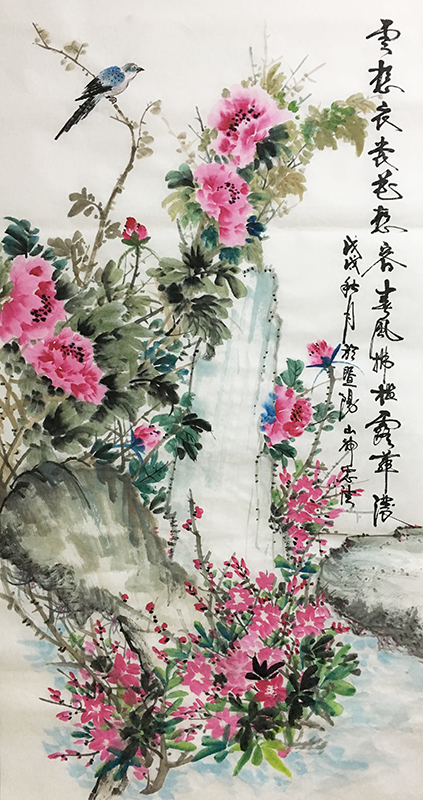 雲想衣裳花想容春風拂檻露華濃
戊戌秋月於暨陽山神志法